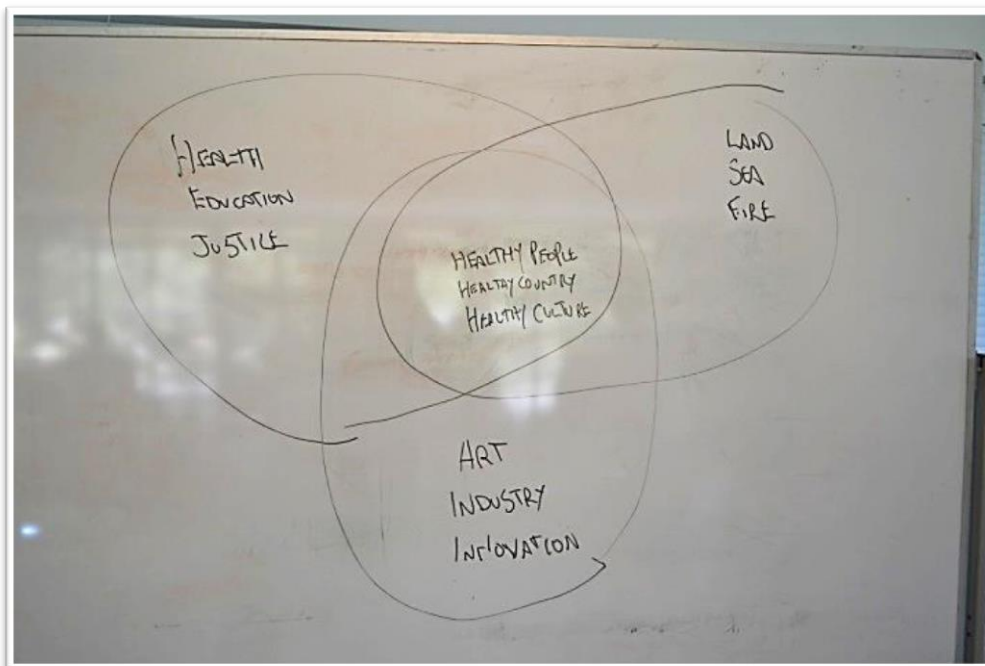 HEALTH
EDUCATION
JUSTICE
LAND
SEA
FIRE
HEALTHY PEOPLE
HEALTHY COUNTRY
HEALTHY CULTURE
ART
INDUSTRY
INNOVATION